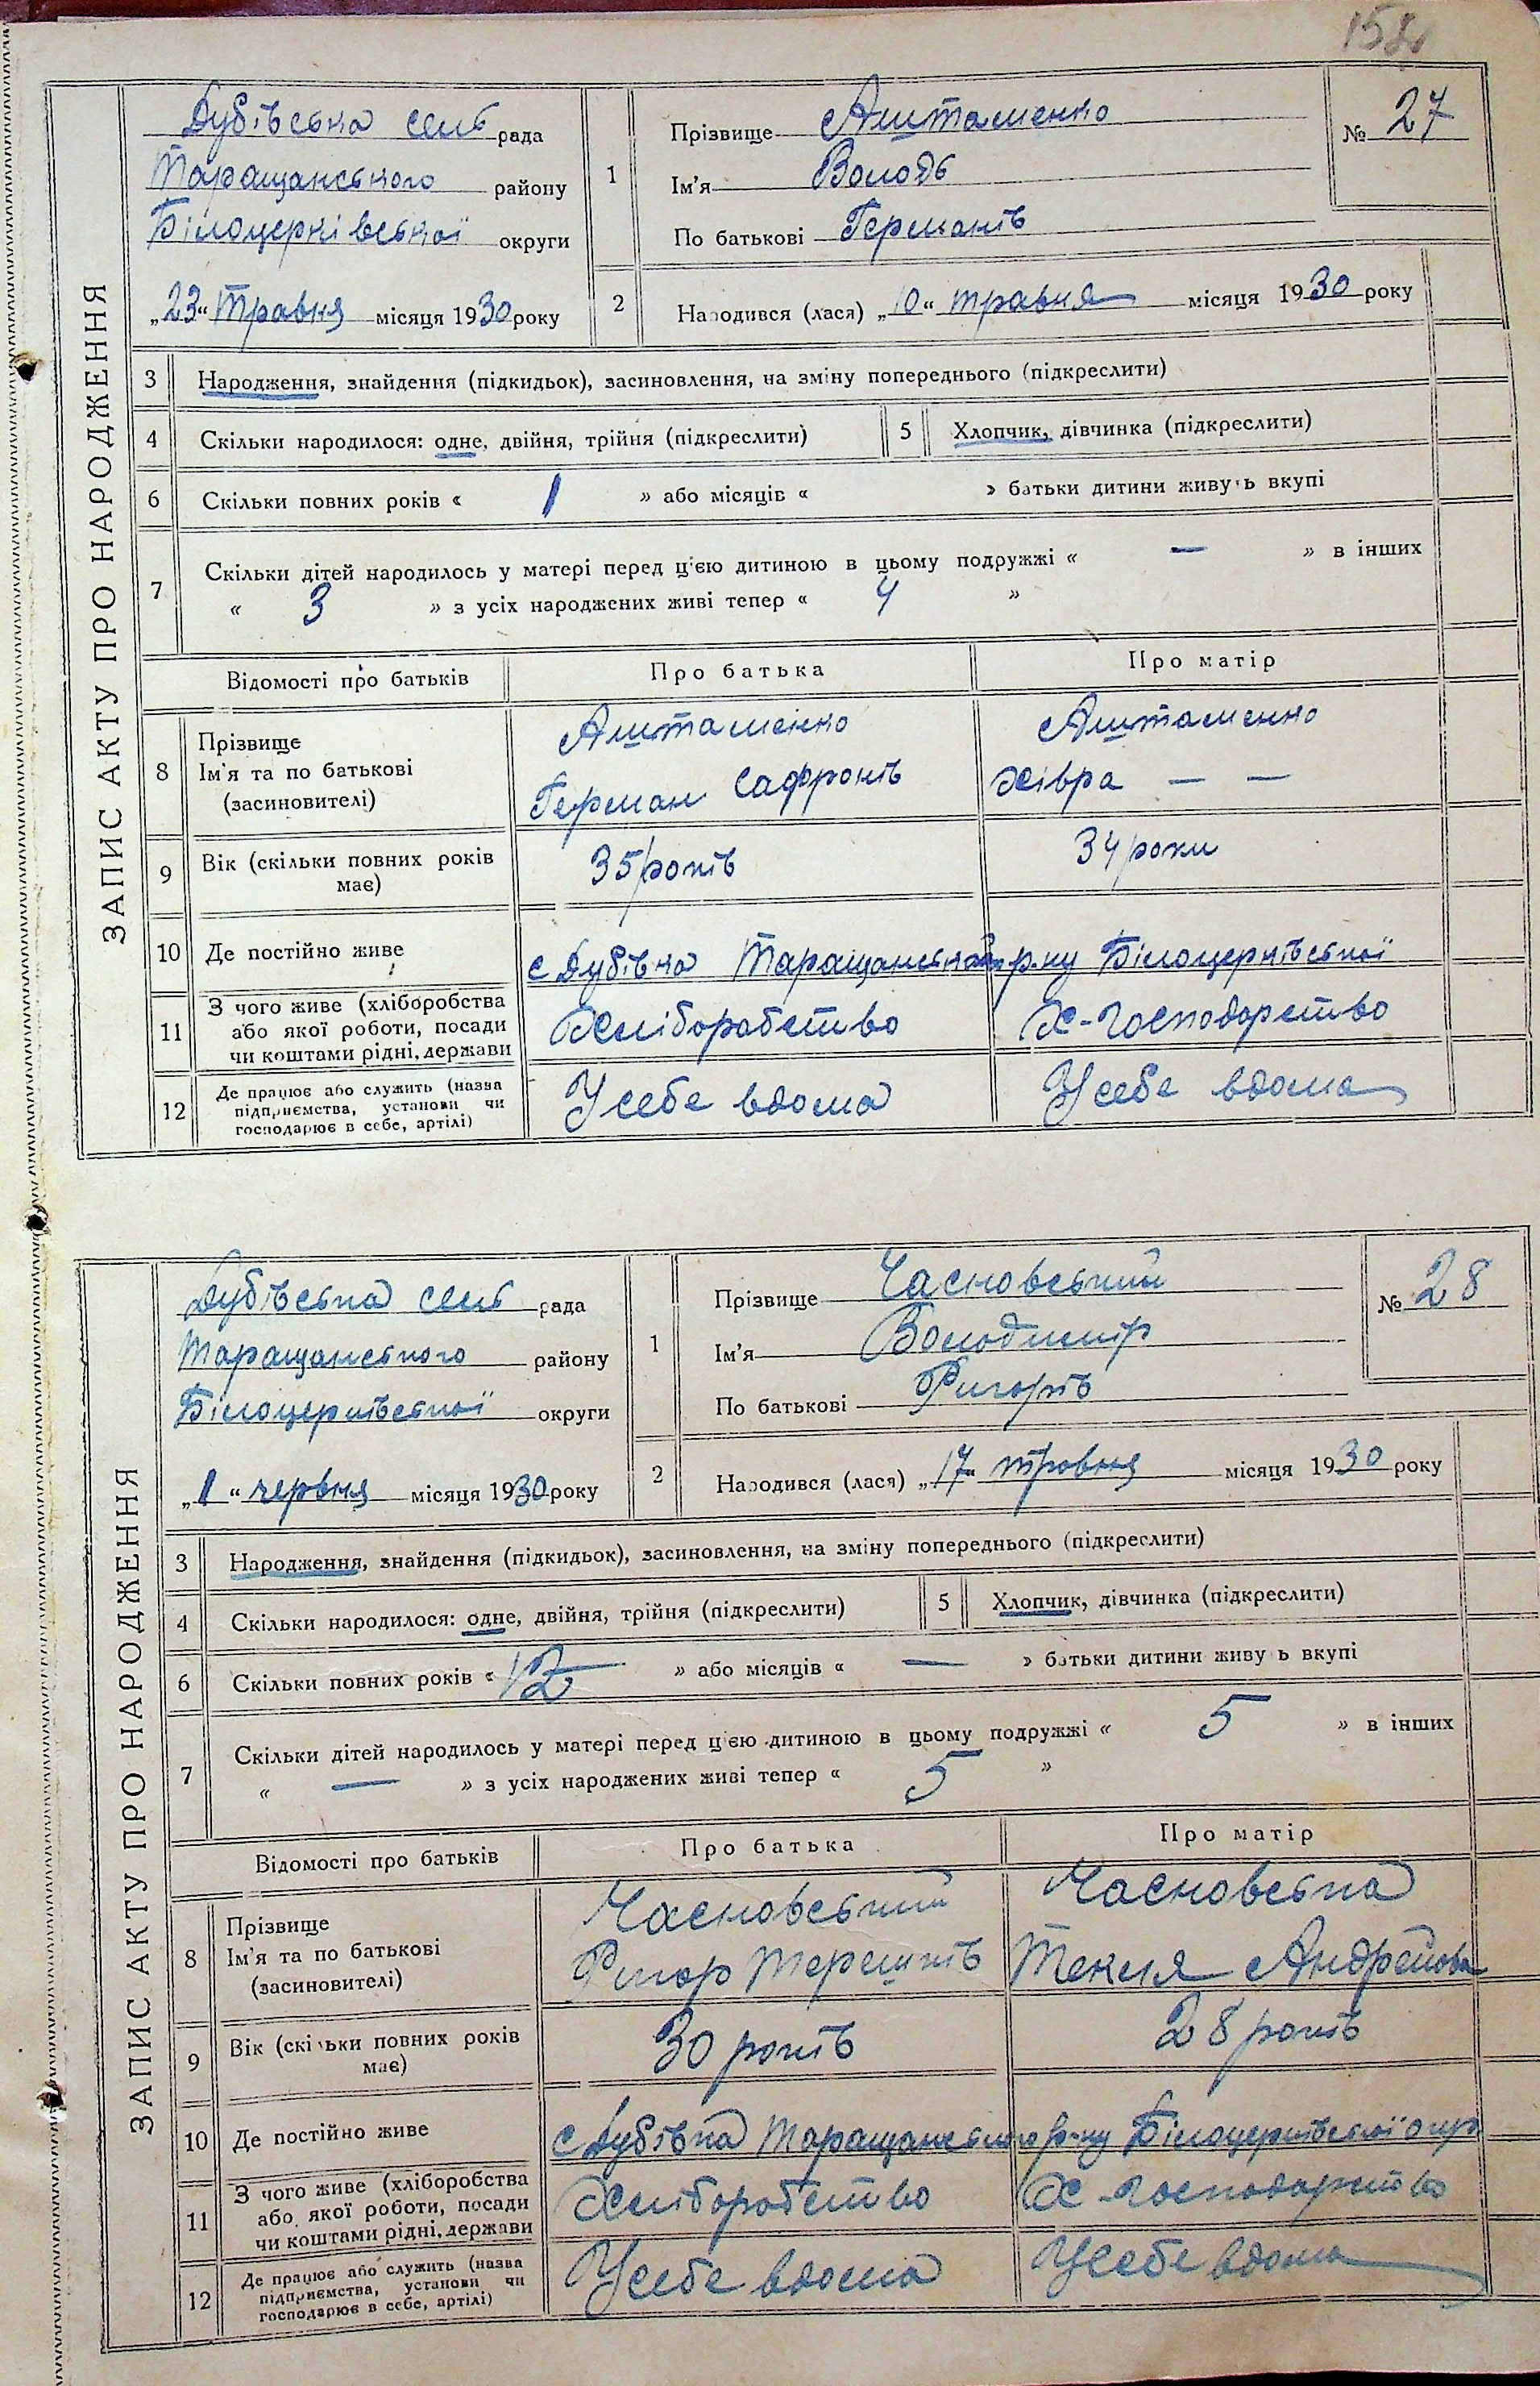 ЗАПИС АКТУ ПРО НАРОДЖЕННЯ
Дубівська сіль рада
Таращанського району
Білоцерківської округи
„23“ Травня місяця 1930 року
1 Прізвище Аштаменко
Ім'я Володь
По батькові Германів
№ 27
2 Народився (лася) „10“ травня місяця 1930 року
3 Народження, знайдення (підкидьок), засиновлення, на зміну попереднього (підкреслити)
4 Скільки народилося: одне, двійня, трійня (підкреслити) 5 Хлопчик, дівчинка (підкреслити)
6 Скільки повних років « 1 » або місяців « » батьки дитини живуть вкупі
7 Скільки дітей народилось у матері перед ц'єю дитиною в цьому подружжі « — » в інших
« 3 » з усіх народжених живі тепер « 4 »
Відомості про батьків Про батька Про матір
8 Прізвище Аштаменко Аштаменко
Ім'я та по батькові Герман Сафронів Хівра — —
(засиновителі)
9 Вік (скільки повних років має) 35 років 34 роки
10 Де постійно живе с Дубівка Таращанського р-ну Білоцерківської
11 З чого живе (хліборобства
або якої роботи, посади
чи коштами рідні, держави
Хліборобство Х-господарство
12 Де працює або служить (назва
підприємства, установи чи
господарює в себе, артілі)
У себе вдома У себе вдома
ЗАПИС АКТУ ПРО НАРОДЖЕННЯ
Дубівська сіль рада
Таращанського району
Білоцерківської округи
„1“ червня місяця 1930 року
1 Прізвище Часновський
Ім'я Володимір
По батькові Ригорів
№ 28
2 Народився (лася) „17“ травня місяця 1930 року
3 Народження, знайдення (підкидьок), засиновлення, на зміну попереднього (підкреслити)
4 Скільки народилося: одне, двійня, трійня (підкреслити) 5 Хлопчик, дівчинка (підкреслити)
6 Скільки повних років « 12 » або місяців « — » батьки дитини живуть вкупі
7 Скільки дітей народилось у матері перед цією дитиною в цьому подружжі « 5 » в інших
« — » з усіх народжених живі тепер « 5 »
Відомості про батьків Про батька Про матір
8 Прізвище Часновський Часновська
Ім'я та по батькові Ригор Терешків Текля Андрейова
(засиновителі)
9 Вік (скільки повних років має) 30 років 28 років
10 Де постійно живе с Дубівка Таращанського р-ну Білоцерківської окр
11 З чого живе (хліборобства
або якої роботи, посади
чи коштами рідні, держави
Хліборобство Х-господарство
12 Де працює або служить (назва
підприємства, установи чи
господарює в себе, артілі)
У себе вдома У себе вдома